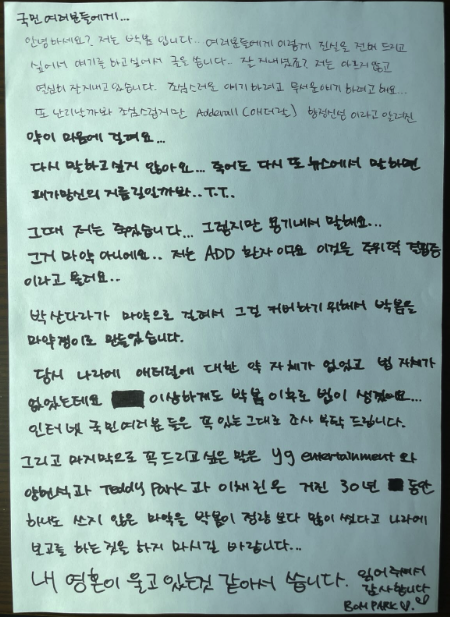 국민 여러분들에게...
안녕하세요? 저는 박봄 입니다.. 여러분들에게 이렇게 진실을 전해 드리고
싶어서 얘기를 하고싶어서 글로 씁니다.. 잘 지내셨죠? 저는 아프지않고
열심히 잘지내고 있습니다. 조심스러운 얘기 하려고 무서운 얘기 하려고 해요...
또 난리난까봐 조심스럽지만 Adderall (애더랄) 향정신성 이라고 알려진
약이 마음에 걸려요...
다시 말하고싶지 않아요... 죽어도 다시 또 뉴스에서 말하면
패가망신의 지름길일까봐.. T.T..
그때 저는 죽었습니다... 그렇지만 용기내서 말해요...
그거 마약 아니에요.. 저는 ADD 환자이구요 이것은 주위력 결핍증
이라고 불려요..
박산다라가 마약으로 걸려서 그걸 커버하기 위해서 박봄을
마약쟁이로 만들었습니다.
당시 나라에 애더럴에 대한 약 자체가 없었고 법 자체가
없었는데요 이상하게도 박봄 이후로 법이 생겼어요...
인터넷 국민여러분 들은 꼭 있는 그대로 조사 부탁 드립니다.
그리고 마지막으로 꼭 드리고 싶은 말은 yg entertainment 와
양현석과 Teddy Park 과 이채린은 거진 30년 동안
하나도 쓰지 않은 마약을 박봄이 정량 보다 많이 썼다고 나라에
보고를 하는 짓은 하지 마시길 바랍니다...
내 영혼이 울고 있는것 같아서 씁니다. 읽어주셔서
감사합니다
BOM PARK ♡.♡